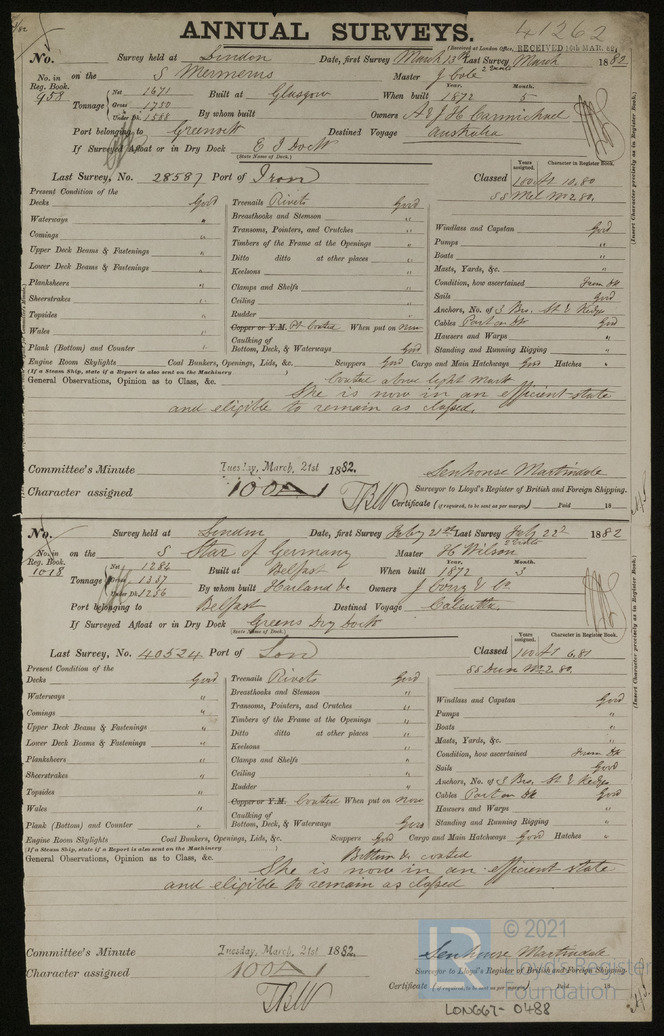 ANNUAL SURVEYS.
41262
(Received at London Office, RECEIVED 15th MAR. 82)
No. Survey held at London Date, first Survey March 13th Last Survey March 1882
2 Visits
No. in on the S Mermerus Master J Cole
Reg. Book. 958
Year. Month.
Tonnage Net 1671 Gross 1750 Under Dk. 1588 Built at Glasgow When built 1872 5
By whom built Owners A & J H Carmichael
Port belonging to Greenock Destined Voyage Australia
If Surveyed Afloat or in Dry Dock E I Dock
(State Name of Dock.)
Years assigned. Character in Register Book.
Last Survey, No. 28587 Port of Iron Classed 100 A1 10,80
SS Mel No 2,80.
(Insert Character precisely as in Register Book.)
Present Condition of the
Decks Good
Waterways "
Comings "
Upper Deck Beams & Fastenings "
Lower Deck Beams & Fastenings "
Planksheers "
Sheerstrakes "
Topsides "
Wales "
Plank (Bottom) and Counter "
Treenails Rivets Good
Breasthooks and Stemson "
Transoms, Pointers, and Crutches "
Timbers of the Frame at the Openings "
Ditto ditto at other places "
Keelsons "
Clamps and Shelfs "
Ceiling "
Rudder "
Copper or Y.M. Pt Coated When put on Now
Caulking of
Bottom, Deck, & Waterways Good
Windlass and Capstan Good
Pumps "
Boats "
Masts, Yards, &c. "
Condition, how ascertained From Dk
Sails Good
Anchors, No. of 3 Bro. St & Kedges
Cables Part on Dk Good
Hawsers and Warps "
Standing and Running Rigging "
Engine Room Skylights Coal Bunkers, Openings, Lids, &c. Scuppers Good Cargo and Main Hatchways Good Hatches "
(If a Steam Ship, state if a Report is also sent on the Machinery )
General Observations, Opinion as to Class, &c. Coated above light mark
She is now in an efficient state
and eligible to remain as classed.
Committee's Minute Tuesday, March, 21st 1882.
Senhouse Martindale
Character assigned 100A1
Surveyor to Lloyd's Register of British and Foreign Shipping.
Certificate (if required, to be sent as per margin) Paid 18
No. Survey held at London Date, first Survey Feby 21st Last Survey Feby 22d 1882
2 Visits
No. in on the S Star of Germany Master H Wilson
Reg. Book. 1018
Year. Month.
Tonnage Net 1284 Gross 1337 Under Dk. 1236 Built at Belfast When built 1872 3
By whom built Harland &c Owners J Corry & Co
Port belonging to Belfast Destined Voyage Calcutta
If Surveyed Afloat or in Dry Dock Greens Dry Dock
(State Name of Dock.)
Years assigned. Character in Register Book.
Last Survey, No. 40324 Port of Lon Classed 100 A1 6,81
(Insert Character precisely as in Register Book.)
Present Condition of the
Decks Good
Waterways "
Comings "
Upper Deck Beams & Fastenings "
Lower Deck Beams & Fastenings "
Planksheers "
Sheerstrakes "
Topsides "
Wales "
Plank (Bottom) and Counter "
Treenails Rivets Good
Breasthooks and Stemson "
Transoms, Pointers, and Crutches "
Timbers of the Frame at the Openings "
Ditto ditto at other places "
Keelsons "
Clamps and Shelfs "
Ceiling "
Rudder "
Copper or Y.M. Coated When put on Now
Caulking of
Bottom, Deck, & Waterways Good
Windlass and Capstan Good
Pumps "
Boats "
Masts, Yards, &c. "
Condition, how ascertained From Dk
Sails Good
Anchors, No. of 3 Bro. St & Kedges
Cables Part on Dk Good
Hawsers and Warps "
Standing and Running Rigging "
Engine Room Skylights Coal Bunkers, Openings, Lids, &c. Scuppers Good Cargo and Main Hatchways Good Hatches "
(If a Steam Ship, state if a Report is also sent on the Machinery )
General Observations, Opinion as to Class, &c. Bottom &c coated
She is now in an efficient state
and eligible to remain as classed
Committee's Minute Tuesday, March, 21st 1882.
Senhouse Martindale
Character assigned 100A1
Surveyor to Lloyd's Register of British and Foreign Shipping.
Certificate (if required, to be sent as per margin) Paid 18
LR © 2021
Lloyd's Register
Foundation
LON667-0488